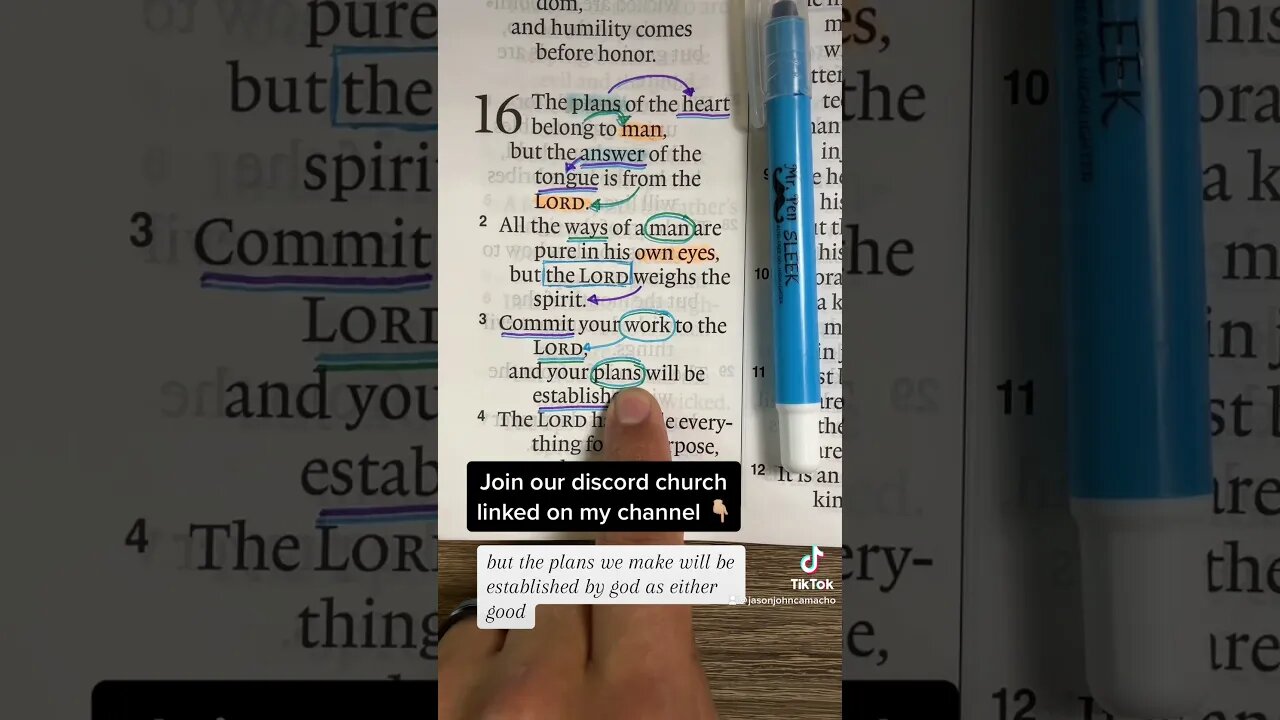 dom,
and humility comes
before honor.
16 The plans of the heart
belong to man,
but the answer of the
tongue is from the
LORD.
2 All the ways of a man are
pure in his own eyes,
but the LORD weighs the
spirit.
3 Commit your work to the
LORD,
and your plans will be
establish
4 The LORD every-
thing
Join our discord church
linked on my channel 👇🏼
but the plans we make will be
established by god as either
good
TikTok
@jasonjohncamacho
Mr. Pen SLEEK
9
10
11
12 It is an
kin
pure
but the
spirit
3 Commit
LORD
and you
estab
4 The LOR
thing
SLEEK
GEL HIGHLIGHTER
10
11
12